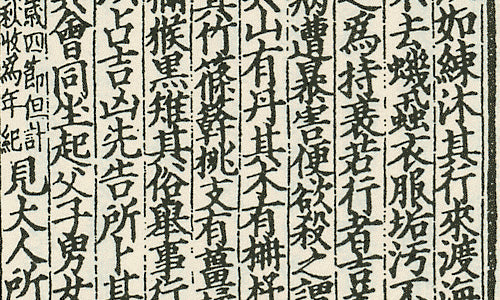 如練沐其行來渡海
不去蟣蝨衣服垢汚不
之爲持衰若行者吉善
病遭暴害便欲殺之謂
山有丹其木有枏杼
其竹篠簳桃支有薑橘
獼猴黑雉其俗舉事行
占吉凶先告所卜其
其會同坐起父子男女
歳四節但計
秋收爲年紀
見大人所